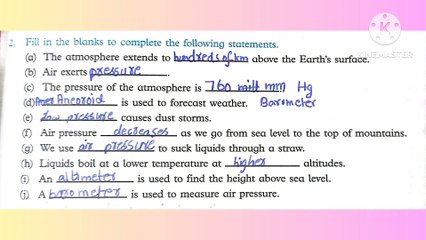 KINEMASTER
2. Fill in the blanks to complete the following statements.
(a) The atmosphere extends to hundreds of km above the Earth's surface.
(b) Air exerts pressure.
(c) The pressure of the atmosphere is 760 mm Hg
(d) Aneoroid is used to forecast weather. Barometer
(e) Low pressure causes dust storms.
(f) Air pressure decreases as we go from sea level to the top of mountains.
(g) We use air pressure to suck liquids through a straw.
(h) Liquids boil at a lower temperature at higher altitudes.
(i) An altimeter is used to find the height above sea level.
(j) A barometer is used to measure air pressure.